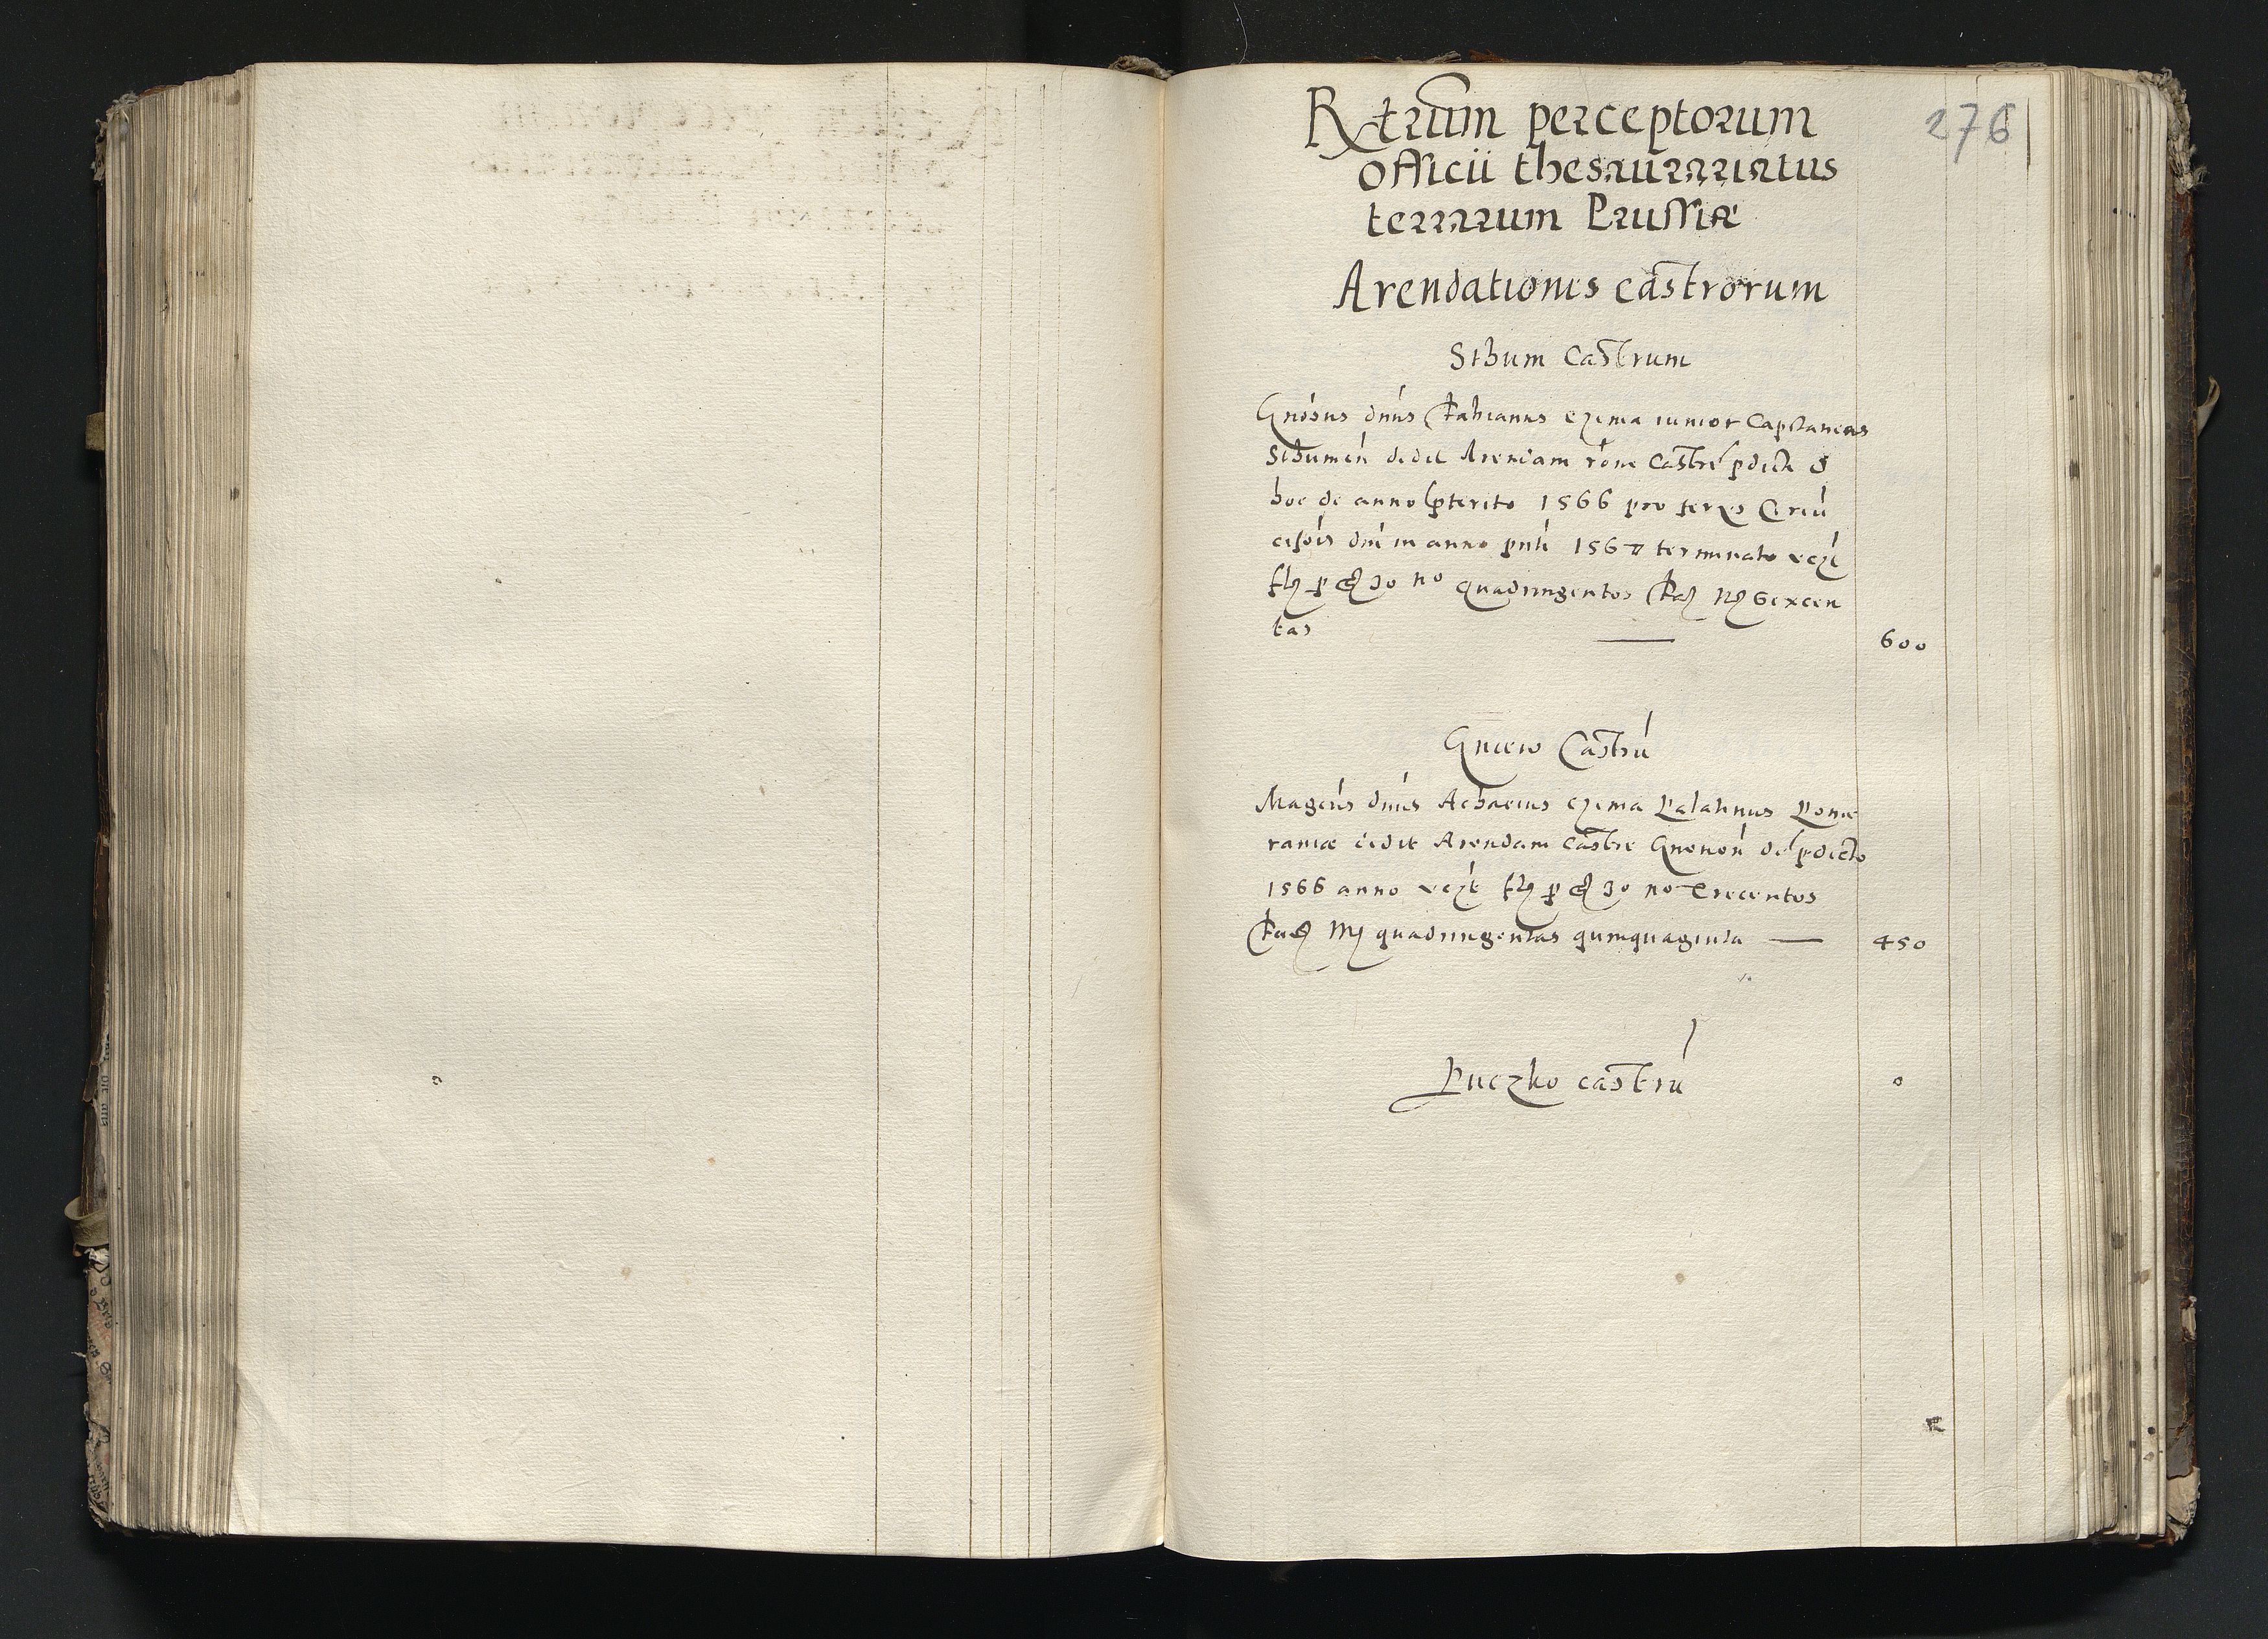 276
Rxtrum perceptorum
officii thesaurariatus
terrarum Prussiæ
Arendationes castrorum
Sthum Castrum
Gnosus dnus Fabianus czema iunior Capitaneus
Sthumen dedit Arendam rone Castri pdicti
hoc de anno pterito 1566 pro festo Circu
cisois dni in anno pnti 1567 terminato
30 no quadringentos fac sexcen
tas — 600
Gniew Castru
Magcus dnus Achacius czema Palatinus Pome
raniæ dedit Arendam Castri Gneuen de pdicto
1566 anno 30 no trecentos
quadringentas quinquaginta — 450
Puczko castru 0